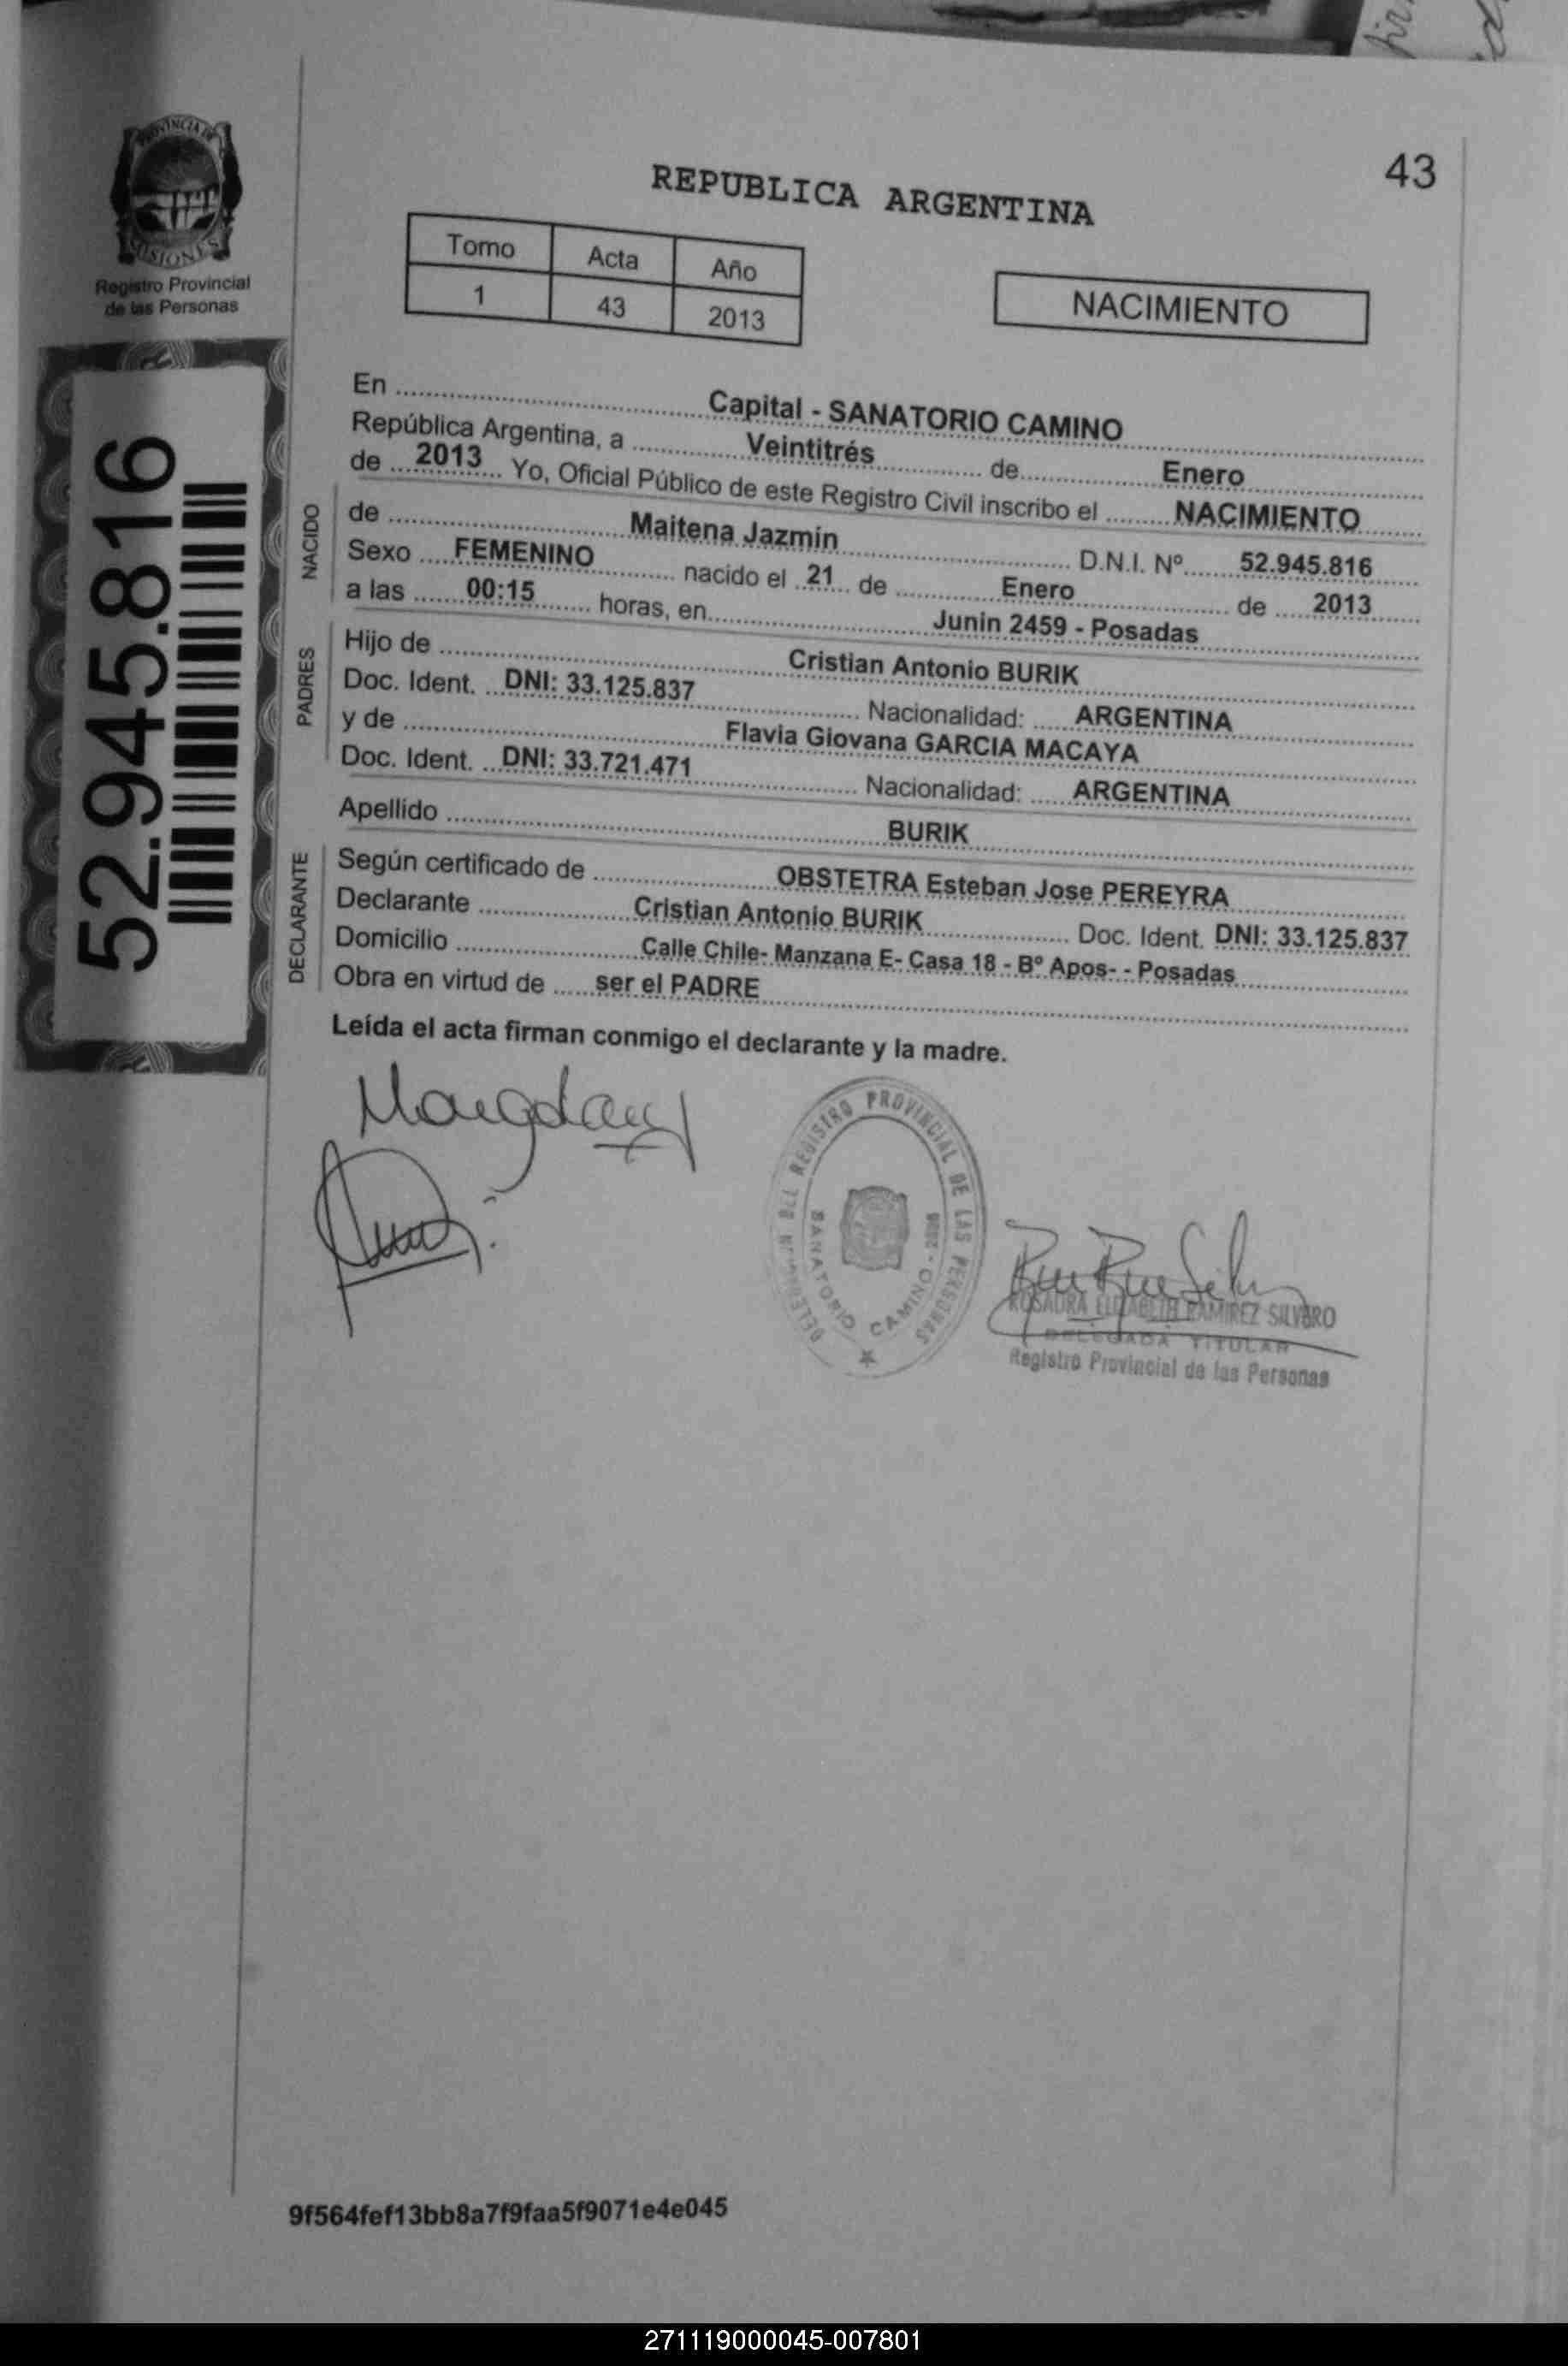 43
PROVINCIA DE
MISIONES
Registro Provincial
de las Personas
REPUBLICA ARGENTINA
Tomo Acta Año
1 43 2013
NACIMIENTO
52.945.816
En Capital - SANATORIO CAMINO
República Argentina, a Veintitrés de Enero
de 2013 Yo, Oficial Público de este Registro Civil inscribo el NACIMIENTO
NACIDO
de Maitena Jazmin D.N.I. Nº 52.945.816
Sexo FEMENINO nacido el 21 de Enero de 2013
a las 00:15 horas, en Junin 2459 - Posadas
PADRES
Hijo de Cristian Antonio BURIK
Doc. Ident. DNI: 33.125.837 Nacionalidad: ARGENTINA
y de Flavia Giovana GARCIA MACAYA
Doc. Ident. DNI: 33.721.471 Nacionalidad: ARGENTINA
Apellido BURIK
DECLARANTE
Según certificado de OBSTETRA Esteban Jose PEREYRA
Declarante Cristian Antonio BURIK Doc. Ident. DNI: 33.125.837
Domicilio Calle Chile- Manzana E- Casa 18 - Bº Apos- - Posadas
Obra en virtud de ser el PADRE
Leída el acta firman conmigo el declarante y la madre.
DEL REGISTRO PROVINCIAL DE LAS PERSONAS
SANATORIO CAMINO
RAMIREZ SILVERO
DELEGADA TITULAR
Registro Provincial de las Personas
9f564fef13bb8a7f9faa5f9071e4e045
271119000045-007801